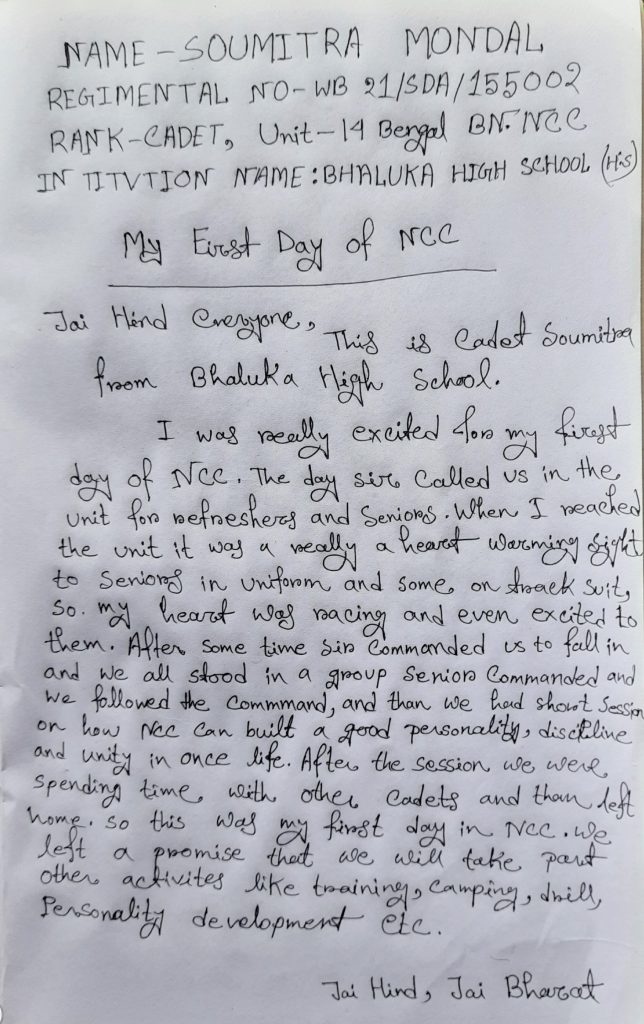 NAME - SOUMITRA MONDAL
REGIMENTAL NO- WB 21/SDA/155002
RANK-CADET, Unit-14 Bengal BN. NCC
IN TITVTION NAME: BHALUKA HIGH SCHOOL (H.S)
My First Day of NCC
Jai Hind Everyone,
This is Cadet Soumitra
from Bhaluka High School.
I was really excited for my first
day of NCC. The day sir Called us in the
unit for refreshers and Seniors. When I reached
the unit it was a really a heart warming sight
to Seniors in uniform and some on track suit,
so. my heart was racing and even excited to
them. After some time sir Commanded us to fall in
and we all stood in a group Senior Commanded and
we followed the commmand, and than we had short Session
on how Ncc Can built a good personality, discipline
and unity in once life. After the session we were
spending time with other Cadets and than left
home. so this was my first day in NCC. we
left a promise that we will take part
other activites like training, camping, drill,
Personality development etc.
Jai Hind, Jai Bharat